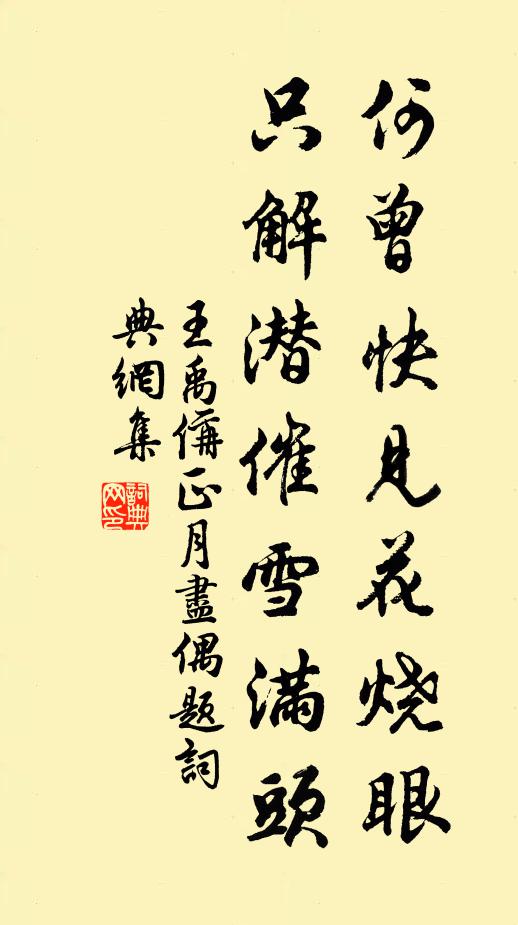 何曾快見花烧眼
只解潜催雪滿頭
王禹偁正月盡偶题詞
典網集
詞典網印